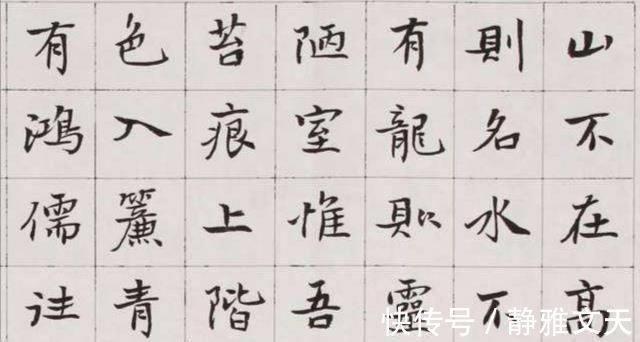 山不在高
則名水不
有龍則靈
陋室惟吾
苔痕上階
色入簾青
有鴻儒往
快传号 / 静雅文天